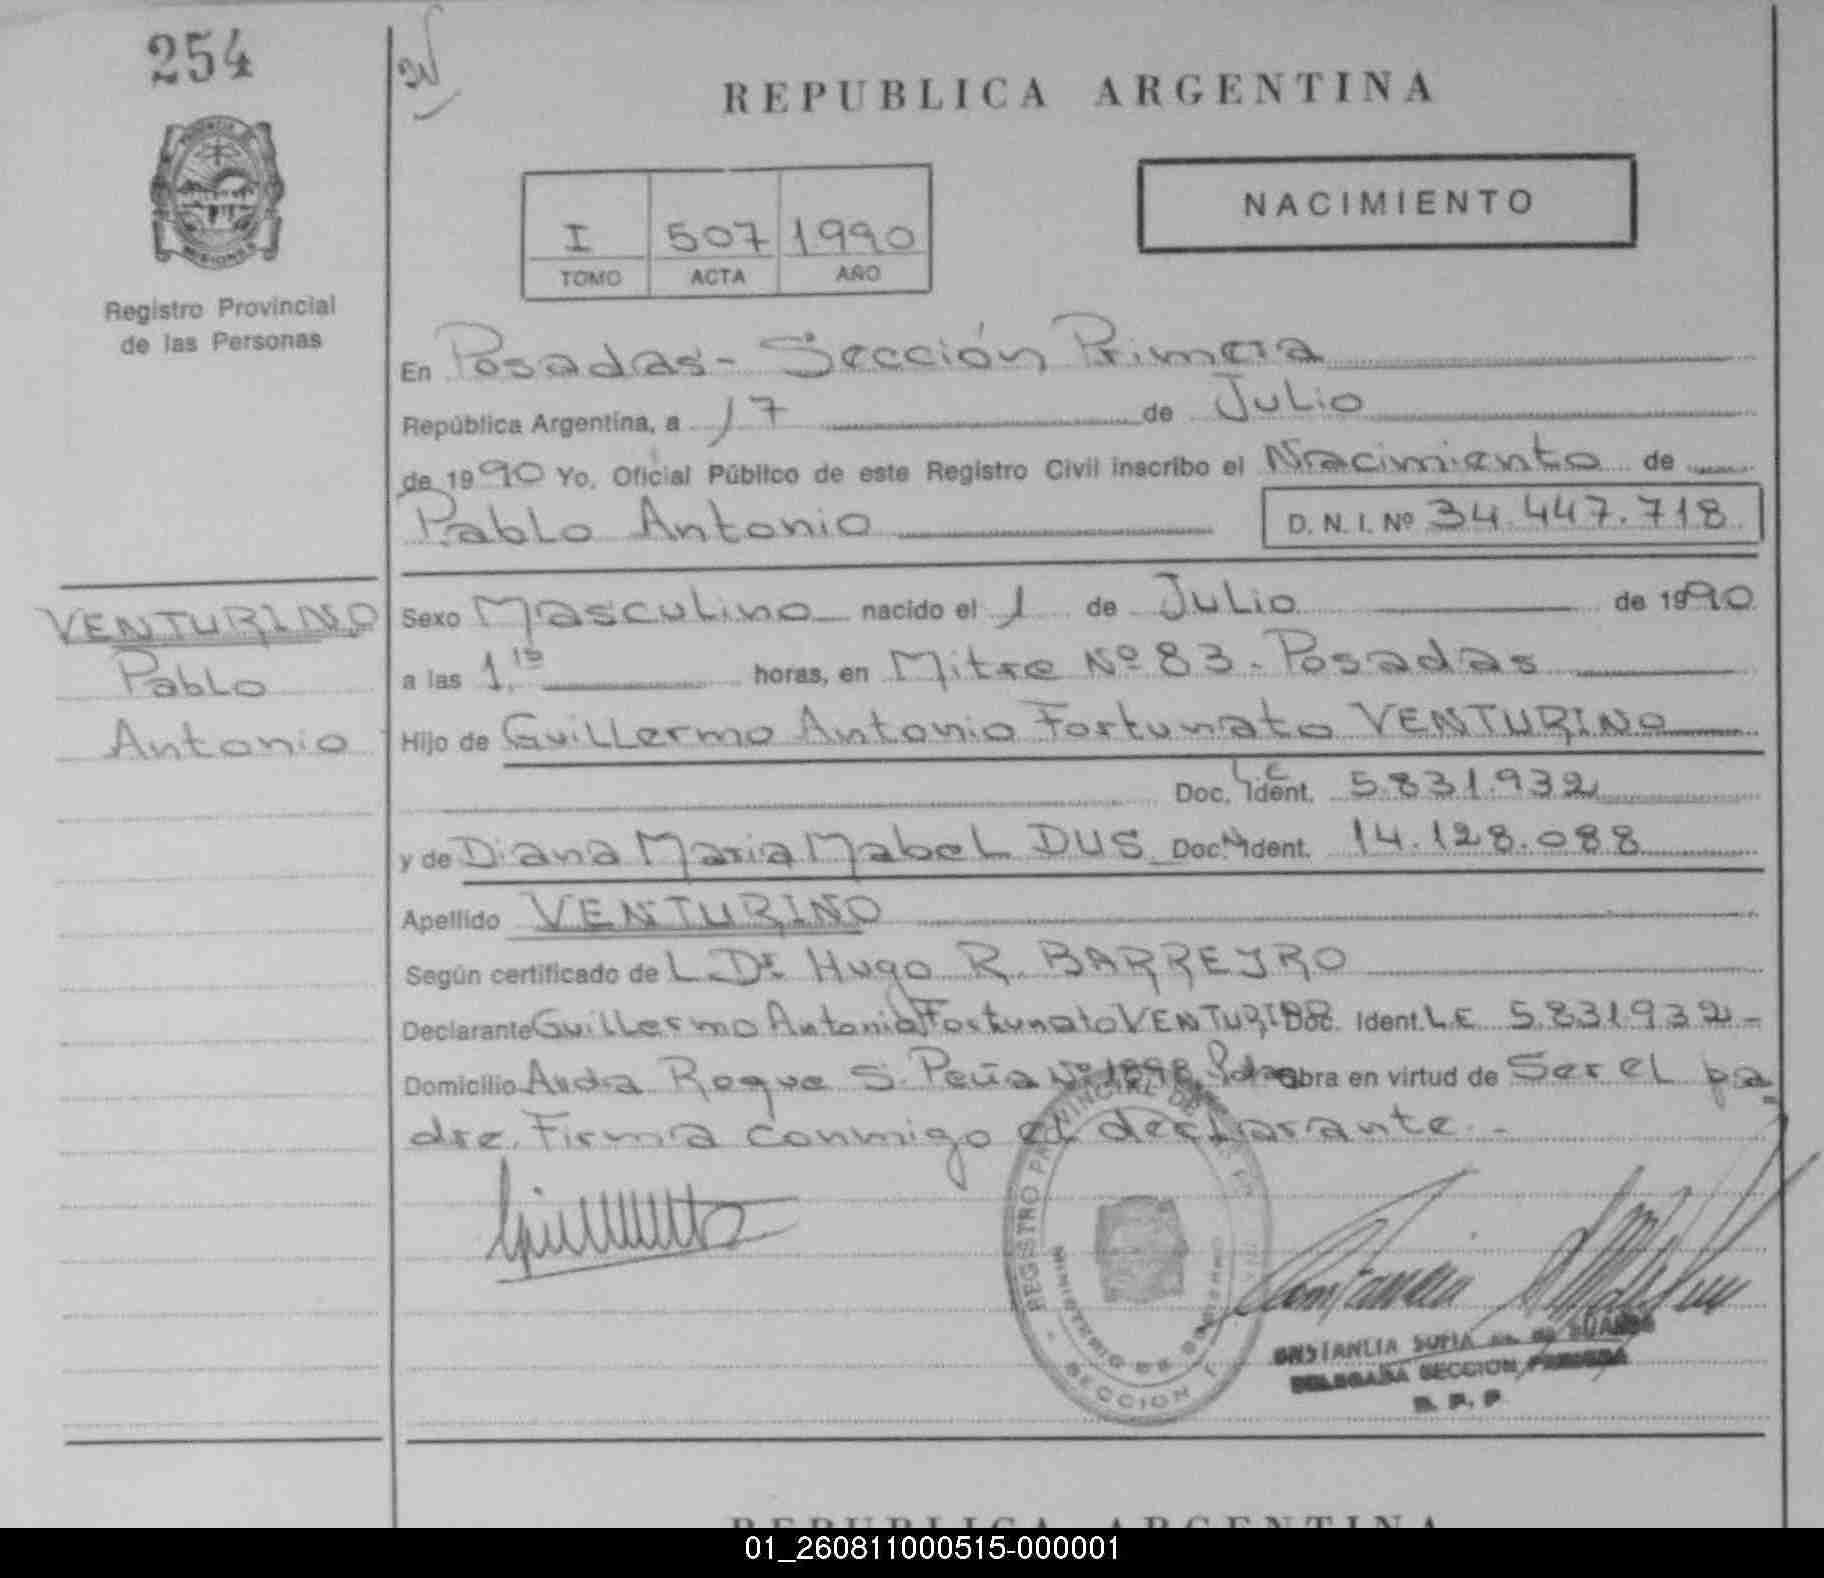 254
REPUBLICA ARGENTINA
NACIMIENTO
I 507 1990
TOMO ACTA AÑO
PROVINCIA DE
MISIONES
Registro Provincial
de las Personas
En Posadas - Sección Primera
República Argentina, a 17 de Julio
de 1990 Yo, Oficial Público de este Registro Civil inscribo el Nacimiento de
Pablo Antonio D. N. I. Nº 34.447.718
VENTURINO
Pablo
Antonio
Sexo Masculino nacido el 1 de Julio de 1990
a las 1,15 horas, en Mitre Nº 83 - Posadas
Hijo de Guillermo Antonio Fortunato VENTURINO
Doc. Ident. L.E 5.831.932
y de Diana Maria Mabel DUS Doc. Ident. 14.128.088
Apellido VENTURINO
Según certificado de L Dr. Hugo R. BARREYRO
Declarante Guillermo Antonio Fortunato VENTURINO Doc. Ident. L.E 5.831.932 -
Domicilio Avda Roque S. Peña Nº 1898 Pdas obra en virtud de Ser el pa
dre. Firma conmigo el declarante. -
REGISTRO PROVINCIAL DE LAS
MINISTERIO DE GOBIERNO
SECCION 1
CONSTANCIA SOFIA
DELEGADA SECCION PRIMERA
R. P. P.
REPUBLICA ARGENTINA
01_260811000515-000001